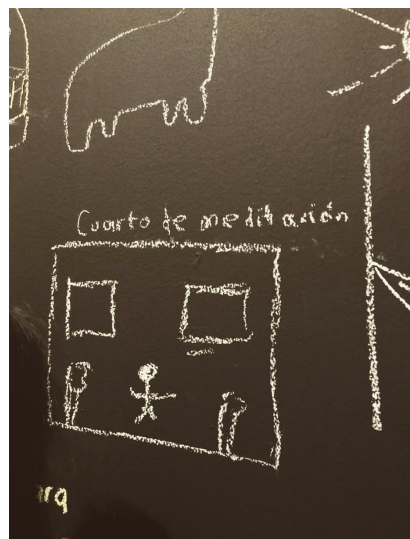 Cuarto de meditación